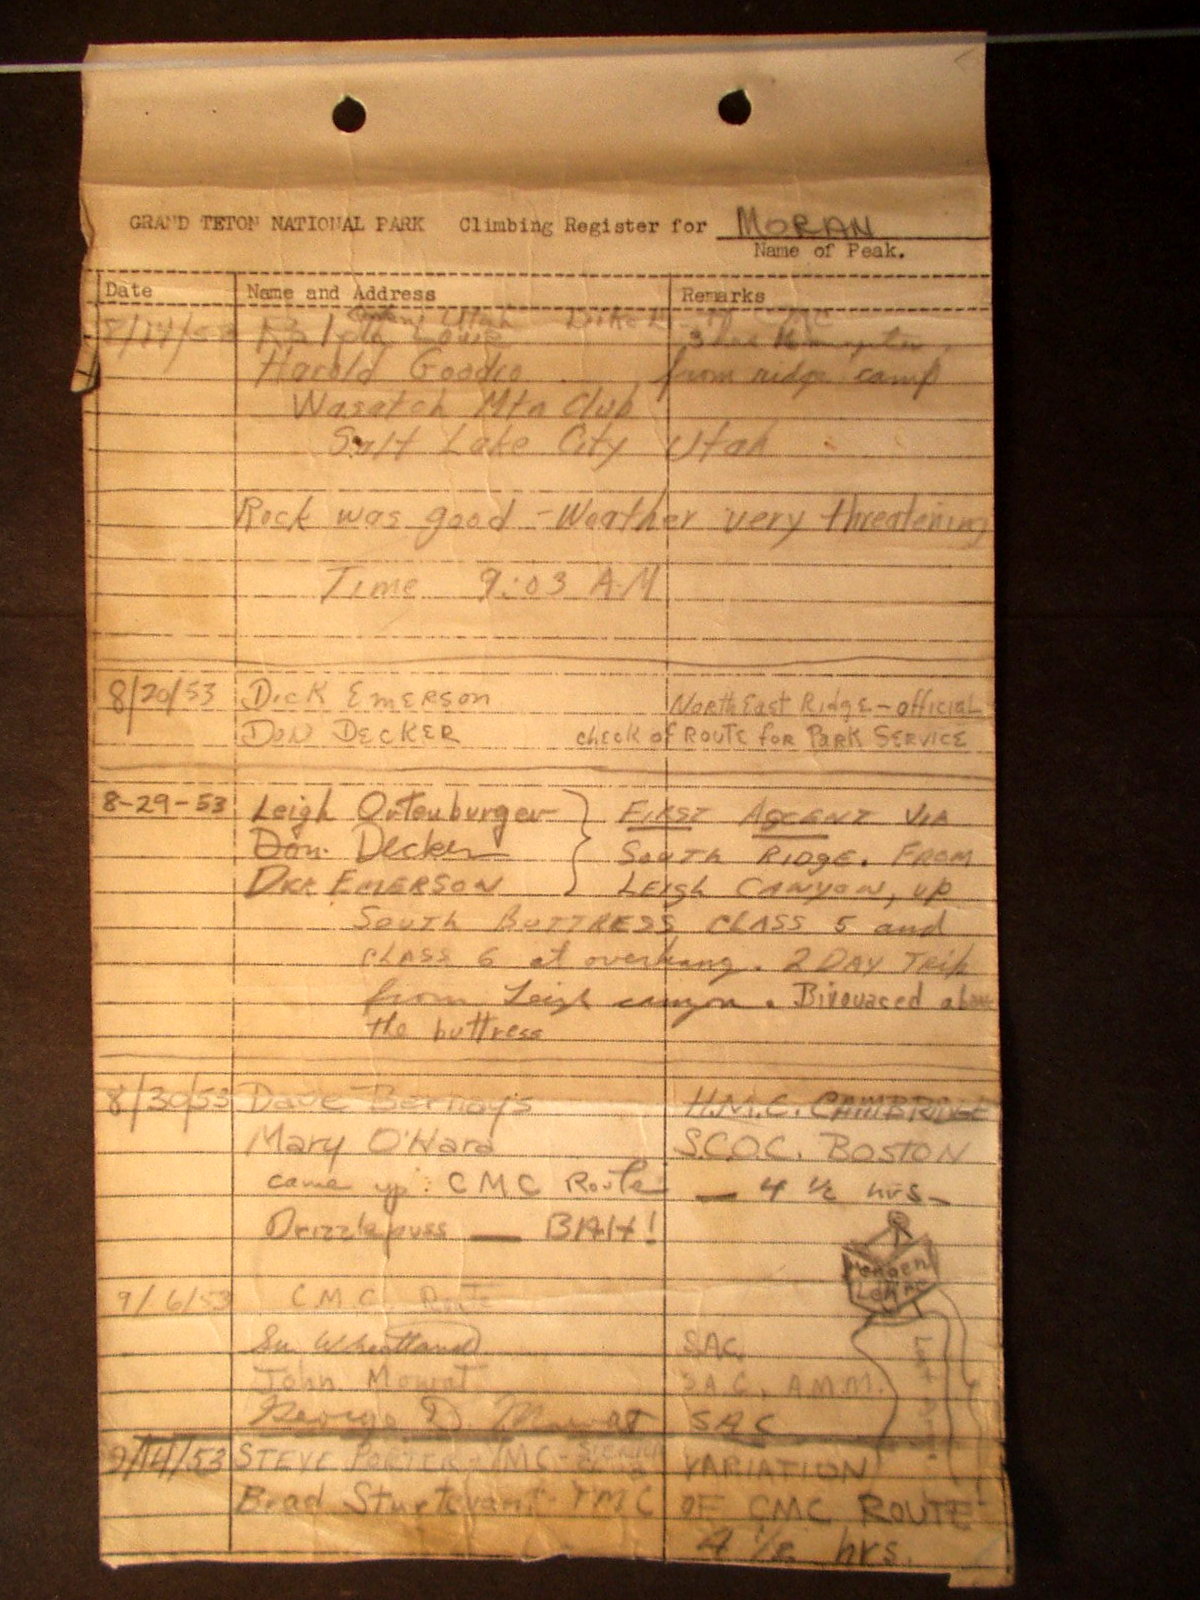 GRAND TETON NATIONAL PARK Climbing Register for MORAN
Name of Peak.
Date Name and Address Remarks
Utah
8/14/53
Harold Goodro from ridge camp
Wasatch Mtn Club
Salt Lake City Utah
Rock was good - Weather very threatening
Time 9:03 A.M
8/20/53 Dick Emerson NorthEast Ridge - official
Don Decker check of Route for Park Service
8-29-53 Leigh Ortenburger First Ascent Via
Don Decker South Ridge. From
Dick Emerson Leigh Canyon, up
South Buttress Class 5 and
Class 6 at overhang. 2 Day Trip
from Leigh canyon. Bivouaced above
the buttress
8/30/53 Dave Bernays H.M.C. CAMBRIDGE
Mary O'Hara S.C.O.C. BOSTON
came up CMC Route — 4 1/2 hrs -
Drizzlepuss — BAH!
9/6/53 C.M.C. Route
SAC
John Mowat S.A.C., A.M.M.
George D. Mowat SAC
9/14/53 STEVE PORTER - YMC VARIATION
Brad Sturtevant - YMC OF CMC ROUTE
4 1/2 hrs.